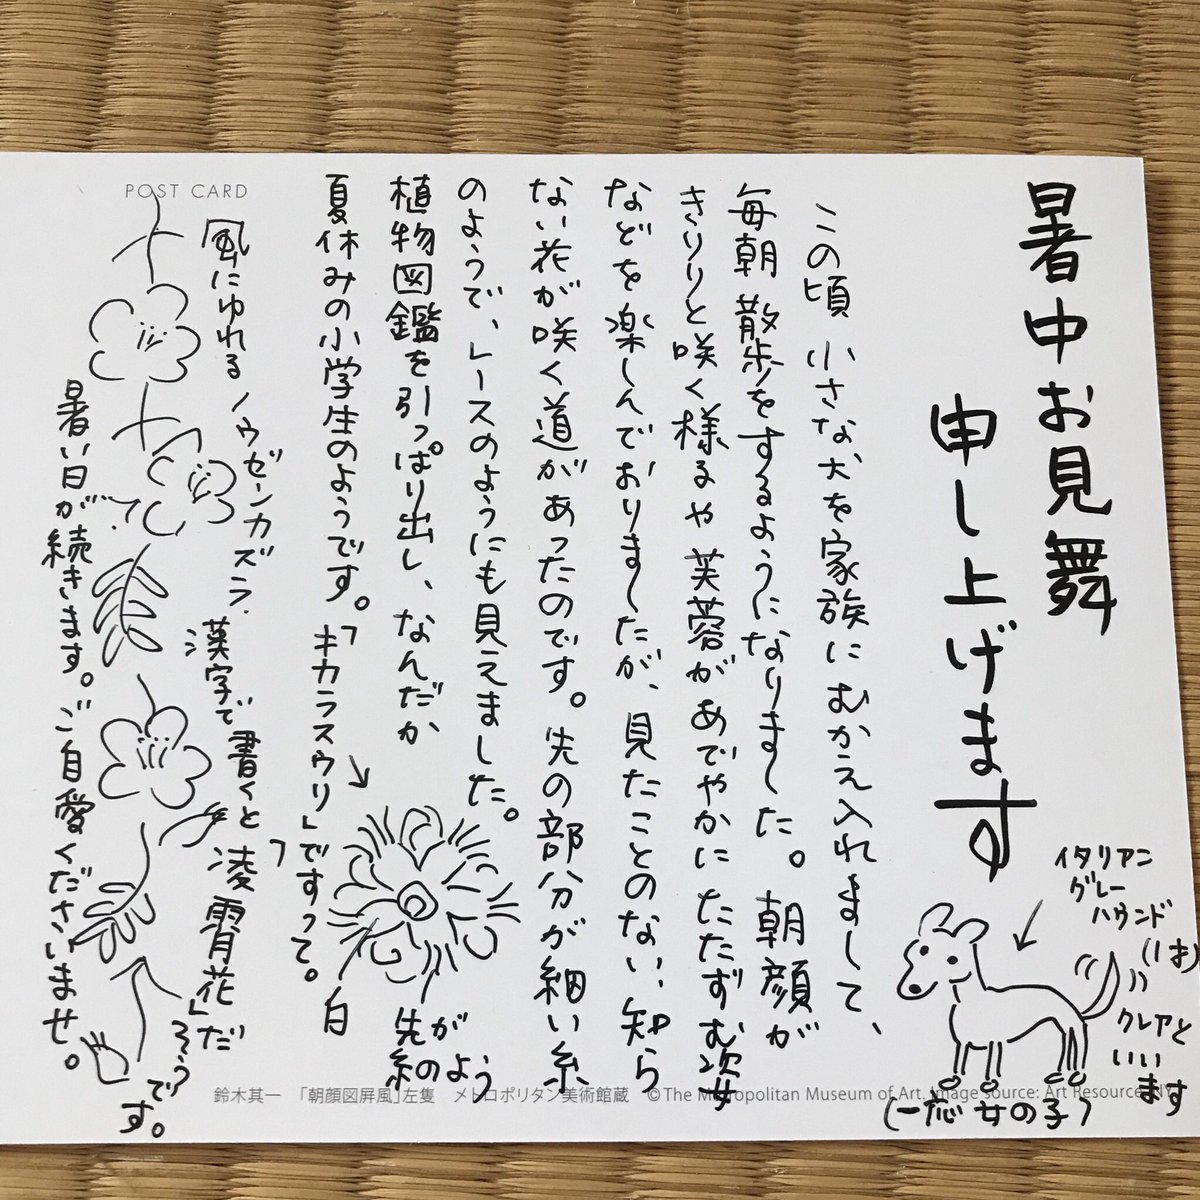 暑中お見舞
申し上げます
この頃 小さな犬を家族にむかえ入れまして、
毎朝 散歩をするようになりました。朝顔が
きりりと咲く様るや 芙蓉があでやかにたたずむ姿
などを楽しんでおりましたが、見たことのない、知ら
ない花が咲く道があったのです。先の部分が細い糸
のようで、レースのようにも見えました。
植物図鑑を引っぱり出し、なんだか
夏休みの小学生のようです。
「キカラスウリ」ですって。
白
先が
糸のよう
イタリアン
グレー
ハウンド
(1才)
クレアと
いい
ます
(一応 女の子)
POST CARD
風にゆれる ノウゼンカズラ.
漢字で書くと「凌霄花」だ
そう
です。
暑い日が続きます。ご自愛くださいませ。
鈴木其一 「朝顔図屏風」左隻 メトロポリタン美術館蔵 ©The Metropolitan Museum of Art. Image source: Art Resource, NY